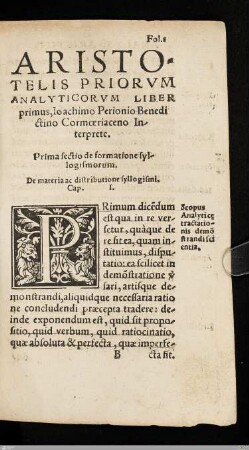 Fol. 1
ARISTO-
TELIS PRIORVM
ANALYTICORVM LIBER
primus, Ioachimo Perionio Benedi
ctino Cormœriaceno In-
terprete.
Prima sectio de formatione syl-
logismorum.
De materia ac distributione syllogismi.
Cap. I.
PRimum dicẽdum
est qua in re ver-
setur, quàque de
re sit ea, quam in-
stituimus, dispu-
tatio: ea scilicet in
demõstratione
sari, artisque de
monstrandi, aliquidque necessaria ratio
ne concludendi præcepta tradere: de-
inde exponendum est, quid sit propo-
sitio, quid verbum, quid ratiocinatio,
quæ absoluta & perfecta, quæ imperfe-
B cta sit.
Scopus
Analyticę
tractatio-
nis demõ
strandi sci
entia.